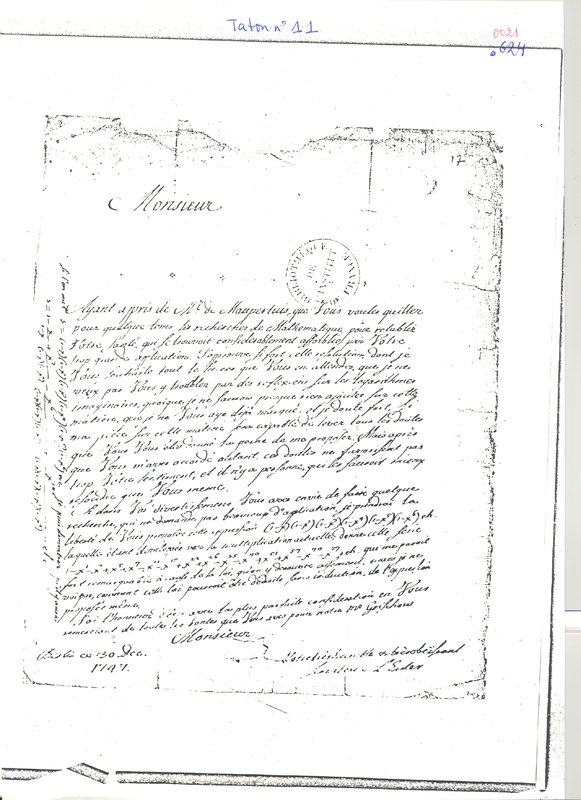 Taton n° 11
0021
624
17
Monsieur
BIBLIOTHEQUE DE L'INSTITUT
Ayant apris de Mr. de Maupertuis, que Vous voules quitter
pour quelque tems les recherches de Mathematique, pour retablir
Votre santé, qui se trouvoit considerablement affoiblie par Votre
trop grande application. J'approuve fort cette resolution, dont je
Vous souhaite tout le succes que Vous en attendes, que je ne
veux pas Vous y troubler par des reflexions sur les logarithmes
imaginaires, quoique je ne saurois presque rien ajouter sur cette
matiere, que je ne Vous aye deja marqué, et je doute fort, que
ma piece sur cette matiere sera capable de lever tous les doutes
que Vous Vous etes donné la peine de me proposer. Mais après
que Vous m'aves accordé autant, ces doutes ne favorisent pas
trop Votre sentiment, et il n'y a personne, qui les sauroit mieux
resoudre que Vous meme.
Si dans Vos divertissemens, Vous aves envie de faire quelque
recherche, qui ne demande pas beaucoup d'application, je prendrai la
liberté de Vous proposer cette expression (1-x)(1-x²)(1-x³)(1-x⁴)(1-x⁵)(1-x⁶) etc.
laquelle étant developée par la multiplication actuelle donne cette serie
fort remarquable à cause de la loi, qu'on y decouvre aisement, mais je ne
vois pas, comment cette loi pourroit etre deduite sans induction de l'expression
proposée même.
J'ai l'honneur d'etre avec la plus parfaite consideration en Vous
remerciant de toutes les bontes que Vous aves pour notre Mr Grischow
Monsieur
Berlin ce 30 Dec.
1747.
Votre tres humble et tres obeissant
serviteur L Euler